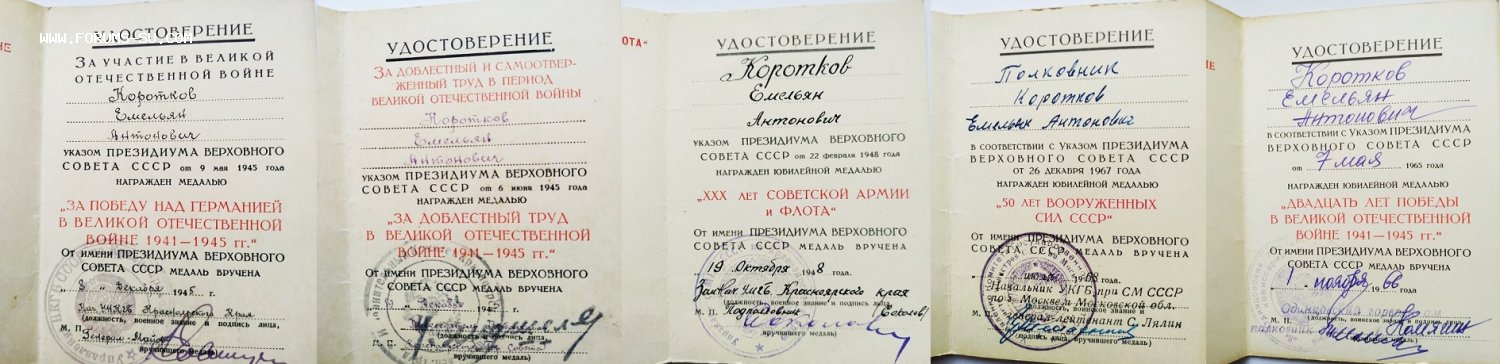 WWW.FORUM-SU.COM
УДОСТОВЕРЕНИЕ
ЗА УЧАСТИЕ В ВЕЛИКОЙ
ОТЕЧЕСТВЕННОЙ ВОЙНЕ
Коротков
Емельян
Антонович
УКАЗОМ ПРЕЗИДИУМА ВЕРХОВНОГО
СОВЕТА СССР от 9 мая 1945 года
НАГРАЖДЕН МЕДАЛЬЮ
„ЗА ПОБЕДУ НАД ГЕРМАНИЕЙ
В ВЕЛИКОЙ ОТЕЧЕСТВЕННОЙ
ВОЙНЕ 1941—1945 гг.“
От имени ПРЕЗИДИУМА ВЕРХОВНОГО
СОВЕТА СССР МЕДАЛЬ ВРУЧЕНА
„ 8 „ Декабря 1945 г.
Нач. УНКГБ Красноярского Края
(должность, военное звание и подпись лица,
М. П. Генерал-Майор
вручившего медаль)
УДОСТОВЕРЕНИЕ
ЗА ДОБЛЕСТНЫЙ И САМООТВЕР-
ЖЕННЫЙ ТРУД В ПЕРИОД
ВЕЛИКОЙ ОТЕЧЕСТВЕННОЙ ВОЙНЫ
Коротков
Емельян
Антонович
УКАЗОМ ПРЕЗИДИУМА ВЕРХОВНОГО
СОВЕТА СССР от 6 июня 1945 года
НАГРАЖДЕН МЕДАЛЬЮ
„ЗА ДОБЛЕСТНЫЙ ТРУД
В ВЕЛИКОЙ ОТЕЧЕСТВЕННОЙ
ВОЙНЕ 1941—1945 гг.“
От имени ПРЕЗИДИУМА ВЕРХОВНОГО
СОВЕТА СССР МЕДАЛЬ ВРУЧЕНА
Декабря 194
М. П.
вручившего медаль)
ОТА“
УДОСТОВЕРЕНИЕ
Коротков
Емельян
Антонович
УКАЗОМ ПРЕЗИДИУМА ВЕРХОВНОГО
СОВЕТА СССР от 22 февраля 1948 года
НАГРАЖДЕН ЮБИЛЕЙНОЙ МЕДАЛЬЮ
„XXX ЛЕТ СОВЕТСКОЙ АРМИИ
И ФЛОТА“
От имени ПРЕЗИДИУМА ВЕРХОВНОГО
СОВЕТА СССР МЕДАЛЬ ВРУЧЕНА
19 Октября 1948 года.
УМГБ Красноярского края
(должность, военное звание и подпись лица,
М. П. Подполковник
вручившего медаль)
УДОСТОВЕРЕНИЕ
Полковник
Коротков
Емельян Антонович
В СООТВЕТСТВИИ С УКАЗОМ ПРЕЗИДИУМА
ВЕРХОВНОГО СОВЕТА СССР
ОТ 26 ДЕКАБРЯ 1967 ГОДА
НАГРАЖДЕН ЮБИЛЕЙНОЙ МЕДАЛЬЮ
„50 ЛЕТ ВООРУЖЕННЫХ
СИЛ СССР“
От имени ПРЕЗИДИУМА ВЕРХОВНОГО
СОВЕТА СССР МЕДАЛЬ ВРУЧЕНА
1968
Начальник УКГБ при СМ СССР
по г. Москве и Московской обл.
М. П. генерал-лейтенант С. Лялин
вручившего медаль)
УДОСТОВЕРЕНИЕ
Коротков
Емельян
Антонович
В СООТВЕТСТВИИ С УКАЗОМ ПРЕЗИДИУМА
ВЕРХОВНОГО СОВЕТА СССР
от 7 мая 1965 года
НАГРАЖДЕН ЮБИЛЕЙНОЙ МЕДАЛЬЮ
„ДВАДЦАТЬ ЛЕТ ПОБЕДЫ
В ВЕЛИКОЙ ОТЕЧЕСТВЕННОЙ
ВОЙНЕ 1941—1945 гг.“
От имени ПРЕЗИДИУМА ВЕРХОВНОГО
СОВЕТА СССР МЕДАЛЬ ВРУЧЕНА
ноября 1966
(должность, воинское звание и
М. П. подпись лица,
полковник
вручившего медаль)